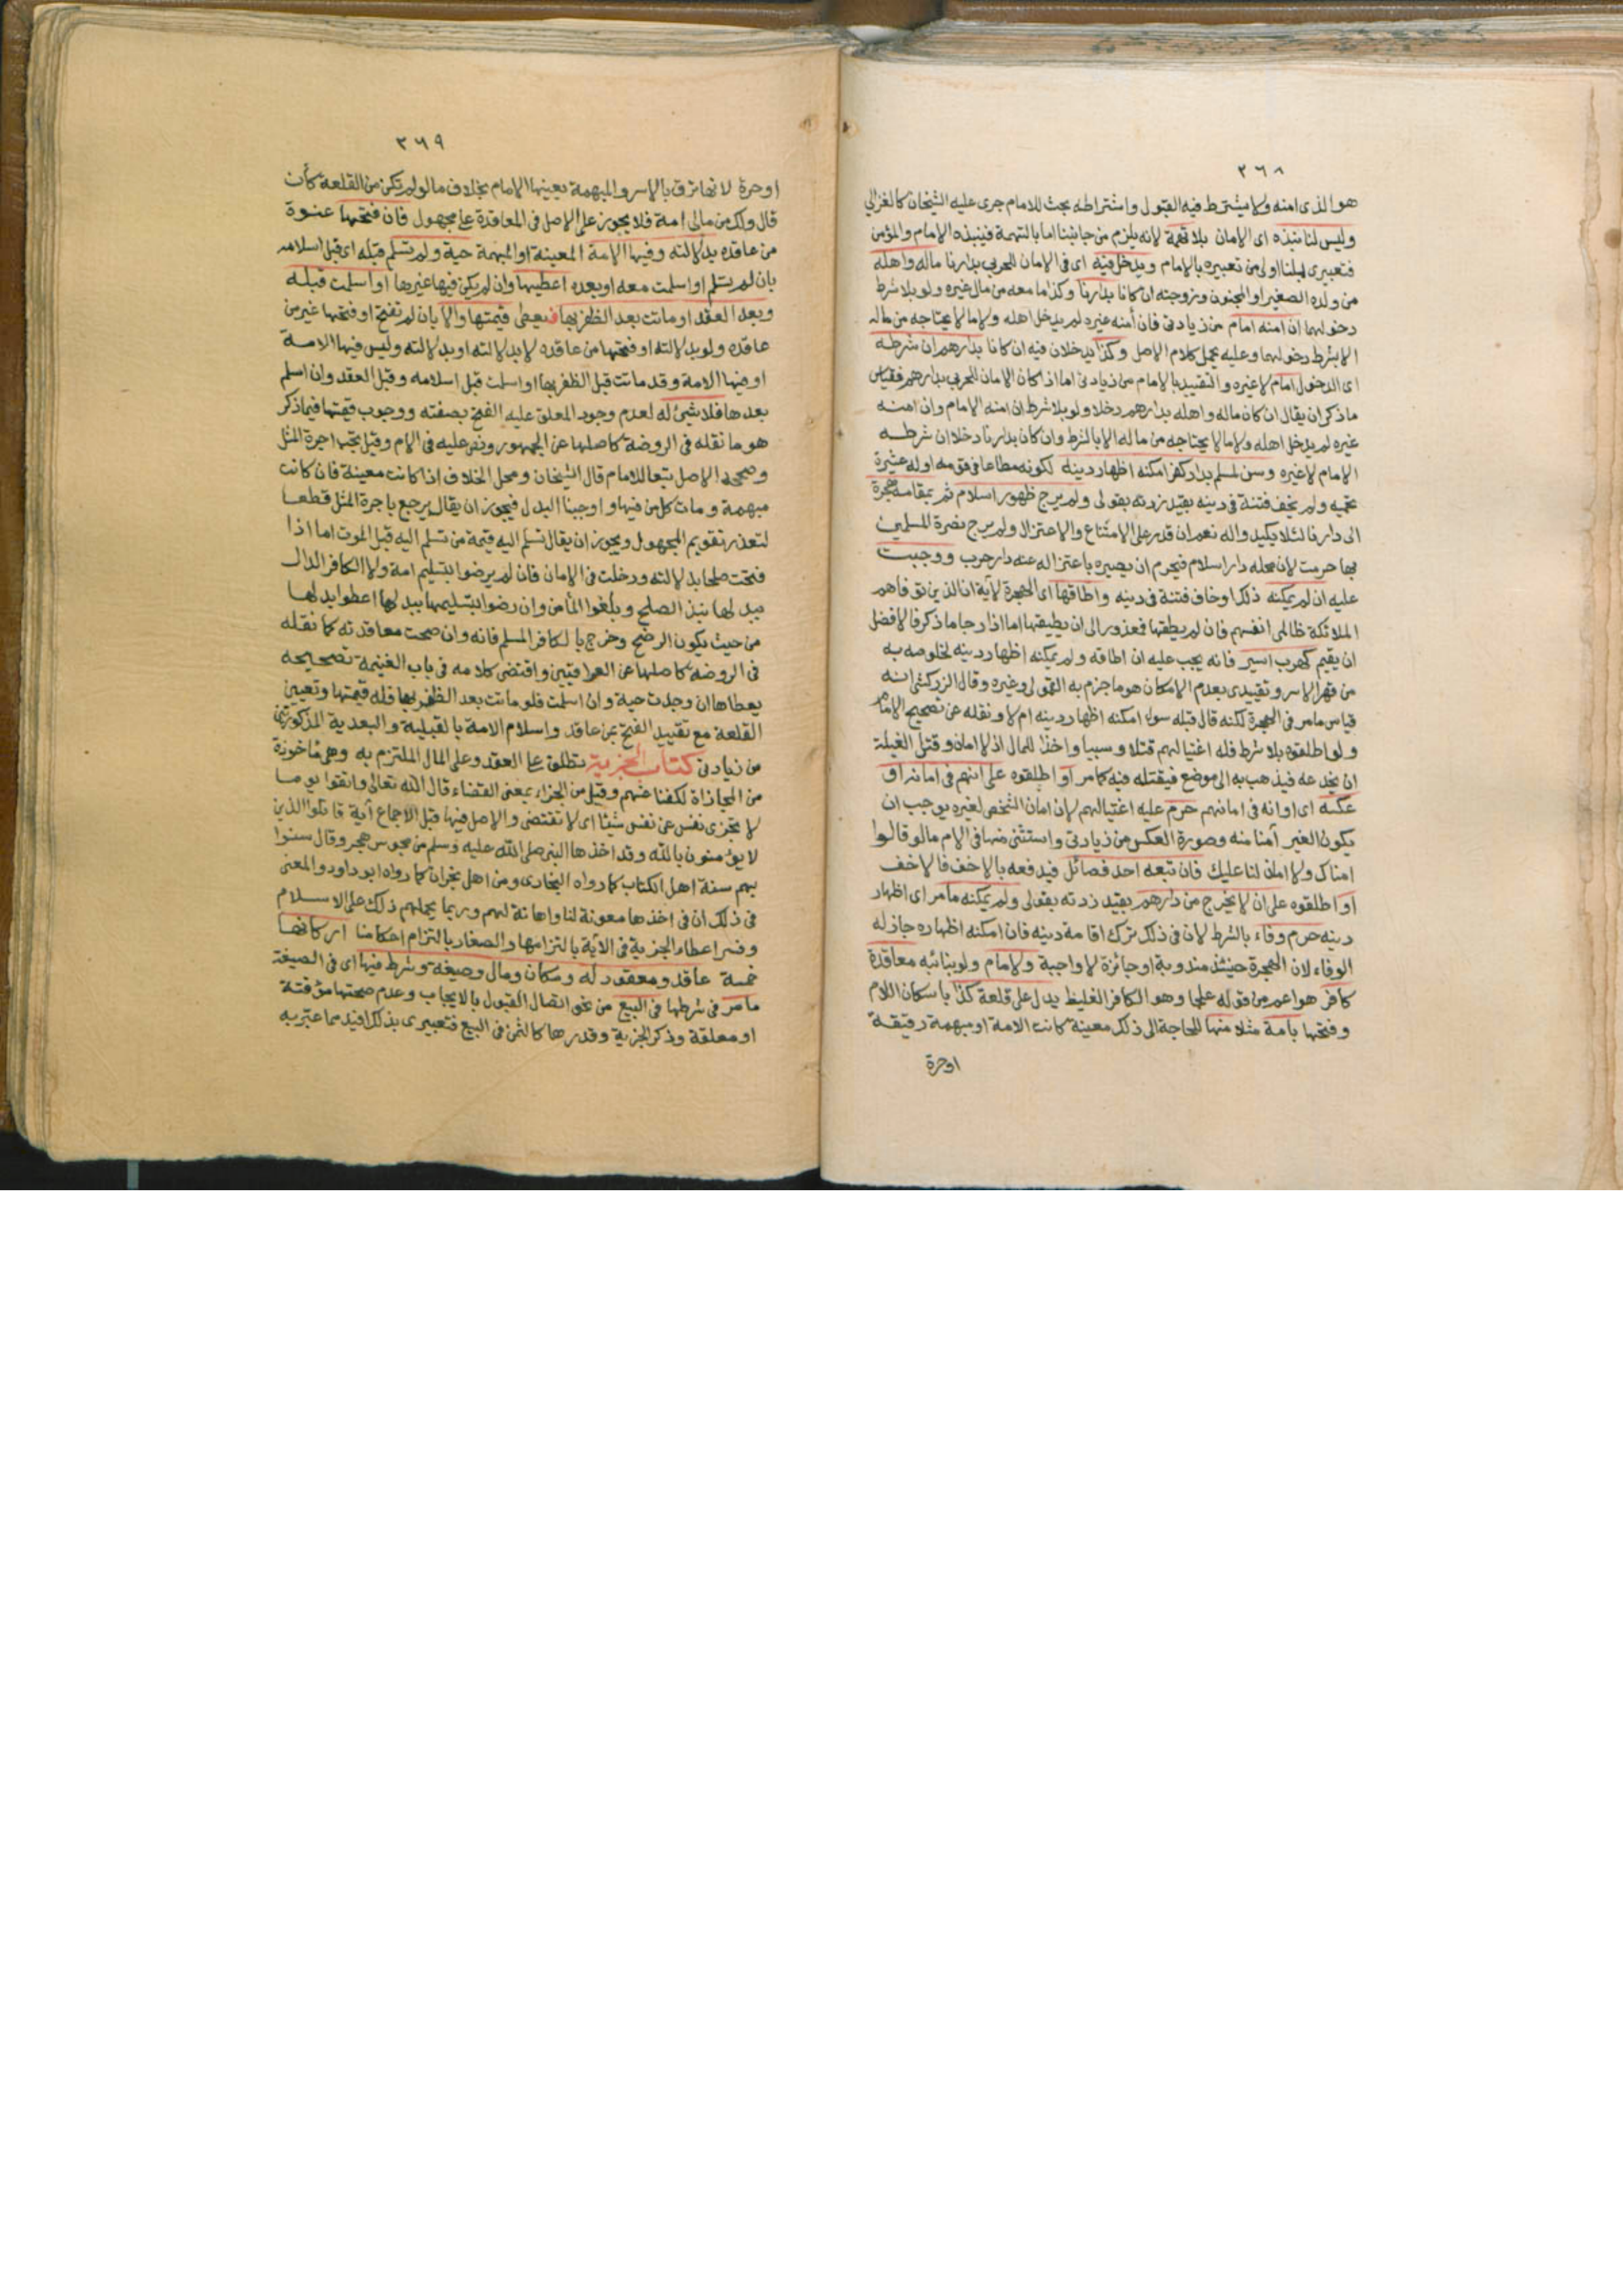 ٣٦٨
هو الذي امنه ولا يشترط فيه القبول واشتراطه بحث للامام جرى عليه الشيخان كالغزالي
وليس لنا نبذه اى الامان بلا تهمة لانه يلزم من جانبنا اما بالتهمة فينبذه الامام والمؤمن
فتعبيرى بلنا اولى من تعبيره بالامام ويدخل فيه اى فى الامان للحربى بدارنا ماله واهله
من ولده الصغير او المجنون وزوجته ان كانا بدارنا وكذا ما معه من مال غيره ولو بلا شرط
دخولهما ان امنه امام من زيادتى فان أمنه غيره لم يدخل اهله ولا ما لا يحتاجه من ماله
الا بشرط دخولهما وعليه يحمل كلام الاصل وكذا يدخلان فيه ان كانا بدارهم ان شرطه
اى الدخول امام لا غيره والتقييد بالامام من زيادتى اما اذا كان الامان للحربى بدارهم فقياس
ما ذكر ان يقال ان كان ماله واهله بدارهم دخلا ولو بلا شرط ان امنه الامام وان امنه
غيره لم يدخل اهله ولا ما لا يحتاجه من ماله الا بالشرط وان كان بدارنا دخلا ان شرطه
الامام لا غيره وسن لمسلم بدار كفر امكنه اظهار دينه لكونه مطاعا فى قومه اوله عشيرة
تحميه ولم يخف فتنة فى دينه بقيد زدته بقولى ولم يرج ظهور اسلام ثم بمقامه هجرة
الى دارنا لئلا يكيدوا له نعم ان قدر على الامتناع والاعتزال ولم يرج نصرة المسلمين
بها حرمت لان محله دار اسلام فيحرم ان يصيره باعتزاله عنه دار حرب ووجبت
عليه ان لم يمكنه ذلك او خاف فتنة فى دينه واطاقها اى الهجرة لآية ان الذين توفاهم
الملائكة ظالمى انفسهم فان لم يطقها فمعذور الى ان يطيقها اما اذا رجا ما ذكر فالافضل
ان يقيم كهرب اسير فانه يجب عليه ان اطاقه ولم يمكنه اظهار دينه لخلوصه به
من قهر الاسر وتقييدى بعدم الامكان هو ما جزم به القمولى وغيره وقال الزركشى انه
قياس ما مر فى الهجرة لكنه قال قبله سواء امكنه اظهار دينه ام لا ونقله عن تصحيح الامام
ولو اطلقوه بلا شرط فله اغتيالهم قتلا وسبيا واخذا للمال اذ لا امان وقتل الغيلة
ان يخدعه فيذهب به الى موضع فيقتله فيه كما مر او اطلقوه على انهم فى امانه او
عكسه اى او انه فى امانهم حرم عليه اغتيالهم لان امان الشخص لغيره يوجب ان
يكون الغير آمنا منه وصورة العكس من زيادتى واستثنى منها فى الام ما لو قالوا
امناك ولا امان لنا عليك فان تبعه احد فصائل فيدفعه بالاخف فالاخف
او اطلقوه على ان لا يخرج من دارهم بقيد زدته بقولى ولم يمكنه ما مر اى اظهار
دينه حرم وفاء بالشرط لان فى ذلك ترك اقامة دينه فان امكنه اظهاره جاز له
الوفاء لان الهجرة حينئذ مندوبة او جائزة لا واجبة ولامام ولو بنائبه معاقدة
كافر هو اعم من قوله علجا وهو الكافر الغليظ يدل على قلعة كذا باسكان اللام
وفتحها بأمة مثلا منها للحاجة الى ذلك معينة كانت الامة او مبهمة رقيقة
اوحرة
٣٦٩
اوحرة لانها ترق بالاسر والمبهمة يعينها الامام بخلاف ما لو لم تكن من القلعة كأن
قال ولك من مالى امة فلا يجوز على الاصل فى المعاقدة على مجهول فان فتحها عنوة
من عاقده بدلالته وفيها الامة المعينة او المبهمة حية ولم تسلم قبله اى قبل اسلامه
بان لم تسلم او اسلمت معه او بعده اعطيها وان لم يكن فيها غيرها او اسلمت قبله
وبعد العقد او ماتت بعد الظفر بها فيعطى قيمتها والا بان لم تفتح او فتحها غير من
عاقده ولو بدلالته او فتحها من عاقده لا بدلالته او بدلالته وليس فيها الامة
او فيها الامة وقد ماتت قبل الظفر بها او اسلمت قبل اسلامه وقبل العقد وان اسلم
بعدها فلا شئ له لعدم وجود المعلق عليه الفتح بصفته ووجوب قيمتها فيما ذكر
هو ما نقله فى الروضة كاصلها عن الجمهور ونص عليه فى الام وقيل يجب اجرة المثل
وصححه الاصل تبعا للامام قال الشيخان ومحل الخلاف اذا كانت معينة فان كانت
مبهمة ومات كل من فيها واوجبنا البدل فيجوز ان يقال يرجع باجرة المثل قطعا
لتعذر تقويم المجهول ويجوز ان يقال تسلم اليه قيمة من تسلم اليه قبل الموت اما اذا
فتحت صلحا بدلالته ودخلت فى الامان فان لم يرضوا بتسليم امة ولا الكافر الدال
ببدلها نبذ الصلح وبلغوا المأمن وان رضوا بتسليمها ببدلها اعطوا بدلها
من حيث يكون الرضخ وخرج بالكافر المسلم فانه وان صحت معاقدته كما نقله
فى الروضة كاصلها عن العراقيين واقتضى كلامه فى باب الغنيمة تصحيحه
يعطاها ان وجدت حية وان اسلمت فلو ماتت بعد الظفر بها فله قيمتها وتعيين
القلعة مع تقييد الفتح بمن عاقد واسلام الامة بالقبلية والبعدية المذكورتين
من زيادتى كتاب الجزية تطلق على العقد وعلى المال الملتزم به وهى مأخوذة
من المجازاة لكفنا عنهم وقيل من الجزاء بمعنى القضاء قال الله تعالى واتقوا يوما
لا تجزى نفس عن نفس شيئا اى لا تقتضى والاصل فيها قبل الاجماع آية قاتلوا الذين
لا يؤمنون بالله وقد اخذها النبى صلى الله عليه وسلم من مجوس هجر وقال سنوا
بهم سنة اهل الكتاب كما رواه البخارى ومن اهل نجران كما رواه ابو داود والمعنى
فى ذلك ان فى اخذها معونة لنا واهانة لهم وربما يحملهم ذلك على الاسلام
وفسر اعطاء الجزية فى الآية بالتزامها والصغار بالتزام احكامنا اركانها
خمسة عاقد ومعقود له ومكان ومال وصيغة وشرط فيها اى فى الصيغة
ما مر فى شرطها فى البيع من نحو اتصال القبول بالايجاب وعدم صحتها مؤقتة
او معلقة وذكر الجزية وقدرها كالثمن فى البيع فتعبيرى بذلك افيد مما عبر به